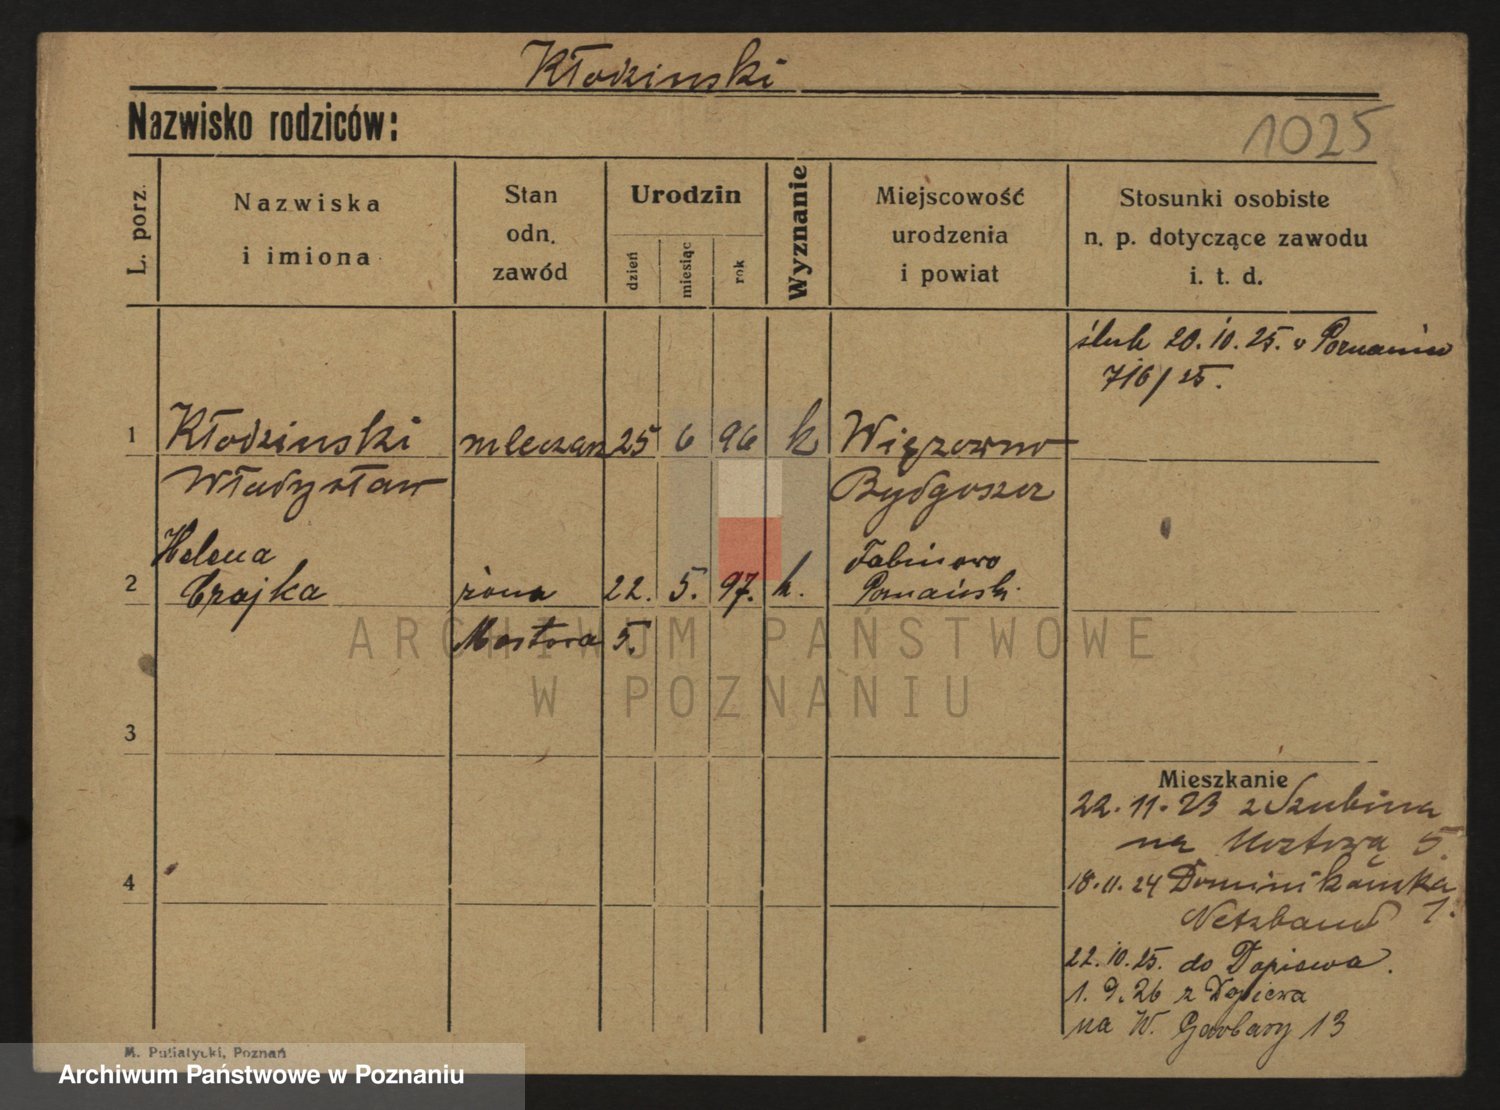 Kłodzinski
Nazwisko rodziców:
1025
L. porz.
Nazwiska
i imiona
Stan
odn.
zawód
Urodzin
dzień
miesiąc
rok
Wyznanie
Miejscowość
urodzenia
i powiat
Stosunki osobiste
n. p. dotyczące zawodu
i. t. d.
ślub 20.10.25. v Poznaniu
716/25.
1 Kłodzinski mleczarz 25 6 96 k
Władysław Bydgoszcz
Helena
2 Czajka żona 22. 5. 97. k. Poznański
Mostowa 5.
ARCHIWUM PAŃSTWOWE
W POZNANIU
3
Mieszkanie
22.11.23 z Szubina
na Mostową 5.
4
18.11.24 Dominikańska
Netzband 7.
22.10.25. do Dopiewa.
1.9.26 z Dopiewa
na W. Garbary 13
M. Putiatycki, Poznań
Archiwum Państwowe w Poznaniu